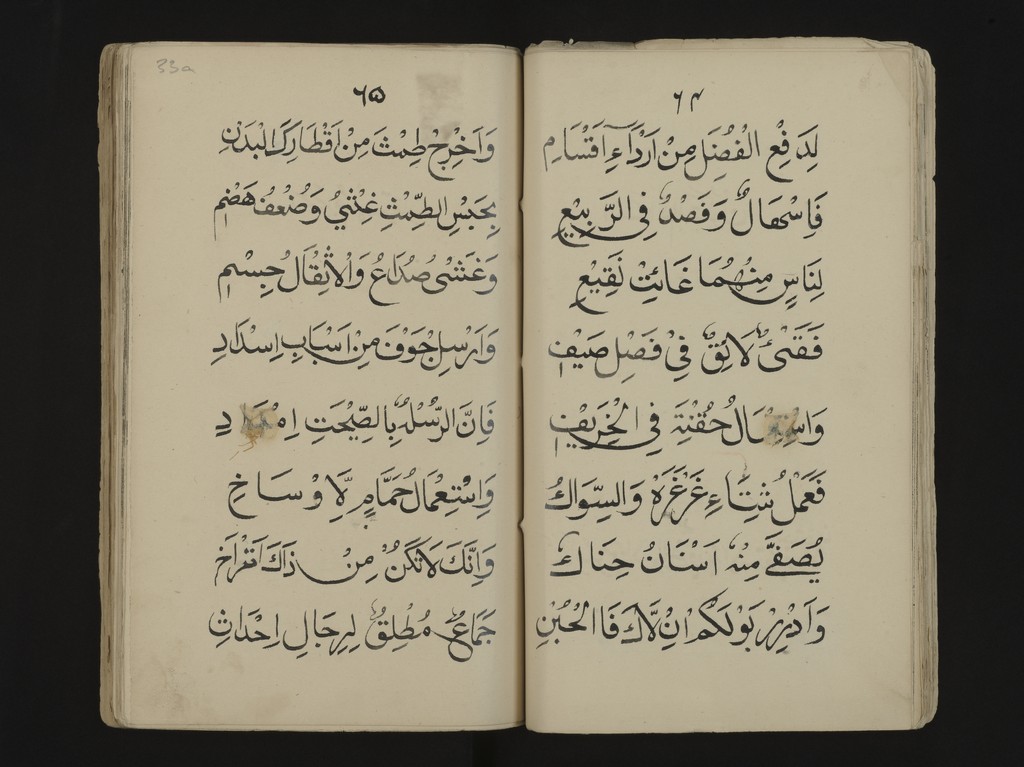 ٦٤
لِدَفْعِ الْفُضَلِ مِنْ اَرْدَآءِ اَقْسَامِ
فَاِسْهَالٌ وَفَصْدٌ فِى الرَّبِيْعِ
لِنَاسٍ مِنْهُمَا غَائِثِ نَقِيْعِ
فَقَئٌ لَائِقٌ فِىْ فَصْلِ صَيْفِ
وَاسْتِعْمَالُ حُقْنَةٍ فِى الْخَرِيْفِ
فَعَمَلُ شِتَآءِ غَرْغَرَةْ وَالسِّوَاكُ
يُصَفّٰى مِنْهُ اَسْنَانُ حِنَاكَ
وَاَدْرِرْ بَوْلَكُمْ اِنْ لَّاكَ فَا الْحُبْنِ
33a
٦٥
وَاَخْرِجْ طِمْثَ مِنْ اَقْطَارِكَ الْبَدَنِ
بِحَبْسِ الطِّمْثِ غِثْيُ وَضُعْفُ هَضْمِ
وَغَشْىُ صُدَاعُ وَالْاَثْقَالُ جِسْمِ
وَاَرْسِلْ جَوْفَ مِنْ اَسْبَابِ اِسْدَادِ
فَاِنَّ الرُّسْلَهْ بِالصِّيْحَتِ
وَاِسْتِعْمَالُ حَمَّامٍ لَّاِوْسَاخِ
وَاِنَّكَ لَا تَكُنْ مِنْ ذَاكَ اَتْرَاخِ
جَمَاعٌ مُطْلِقٌ لِرِجَالِ اِحْدَاثِ